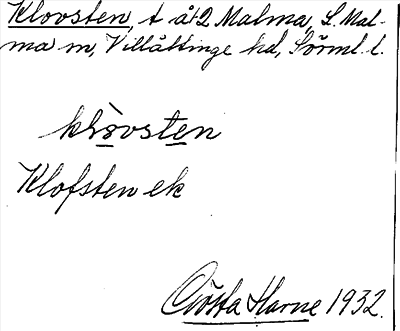 Klovsten, t å 2 Malma, L. Mal-
ma sn, Villåttinge hd, Sörml. l.
klòvsten
Klofsten ek
Gösta Harne 1932.